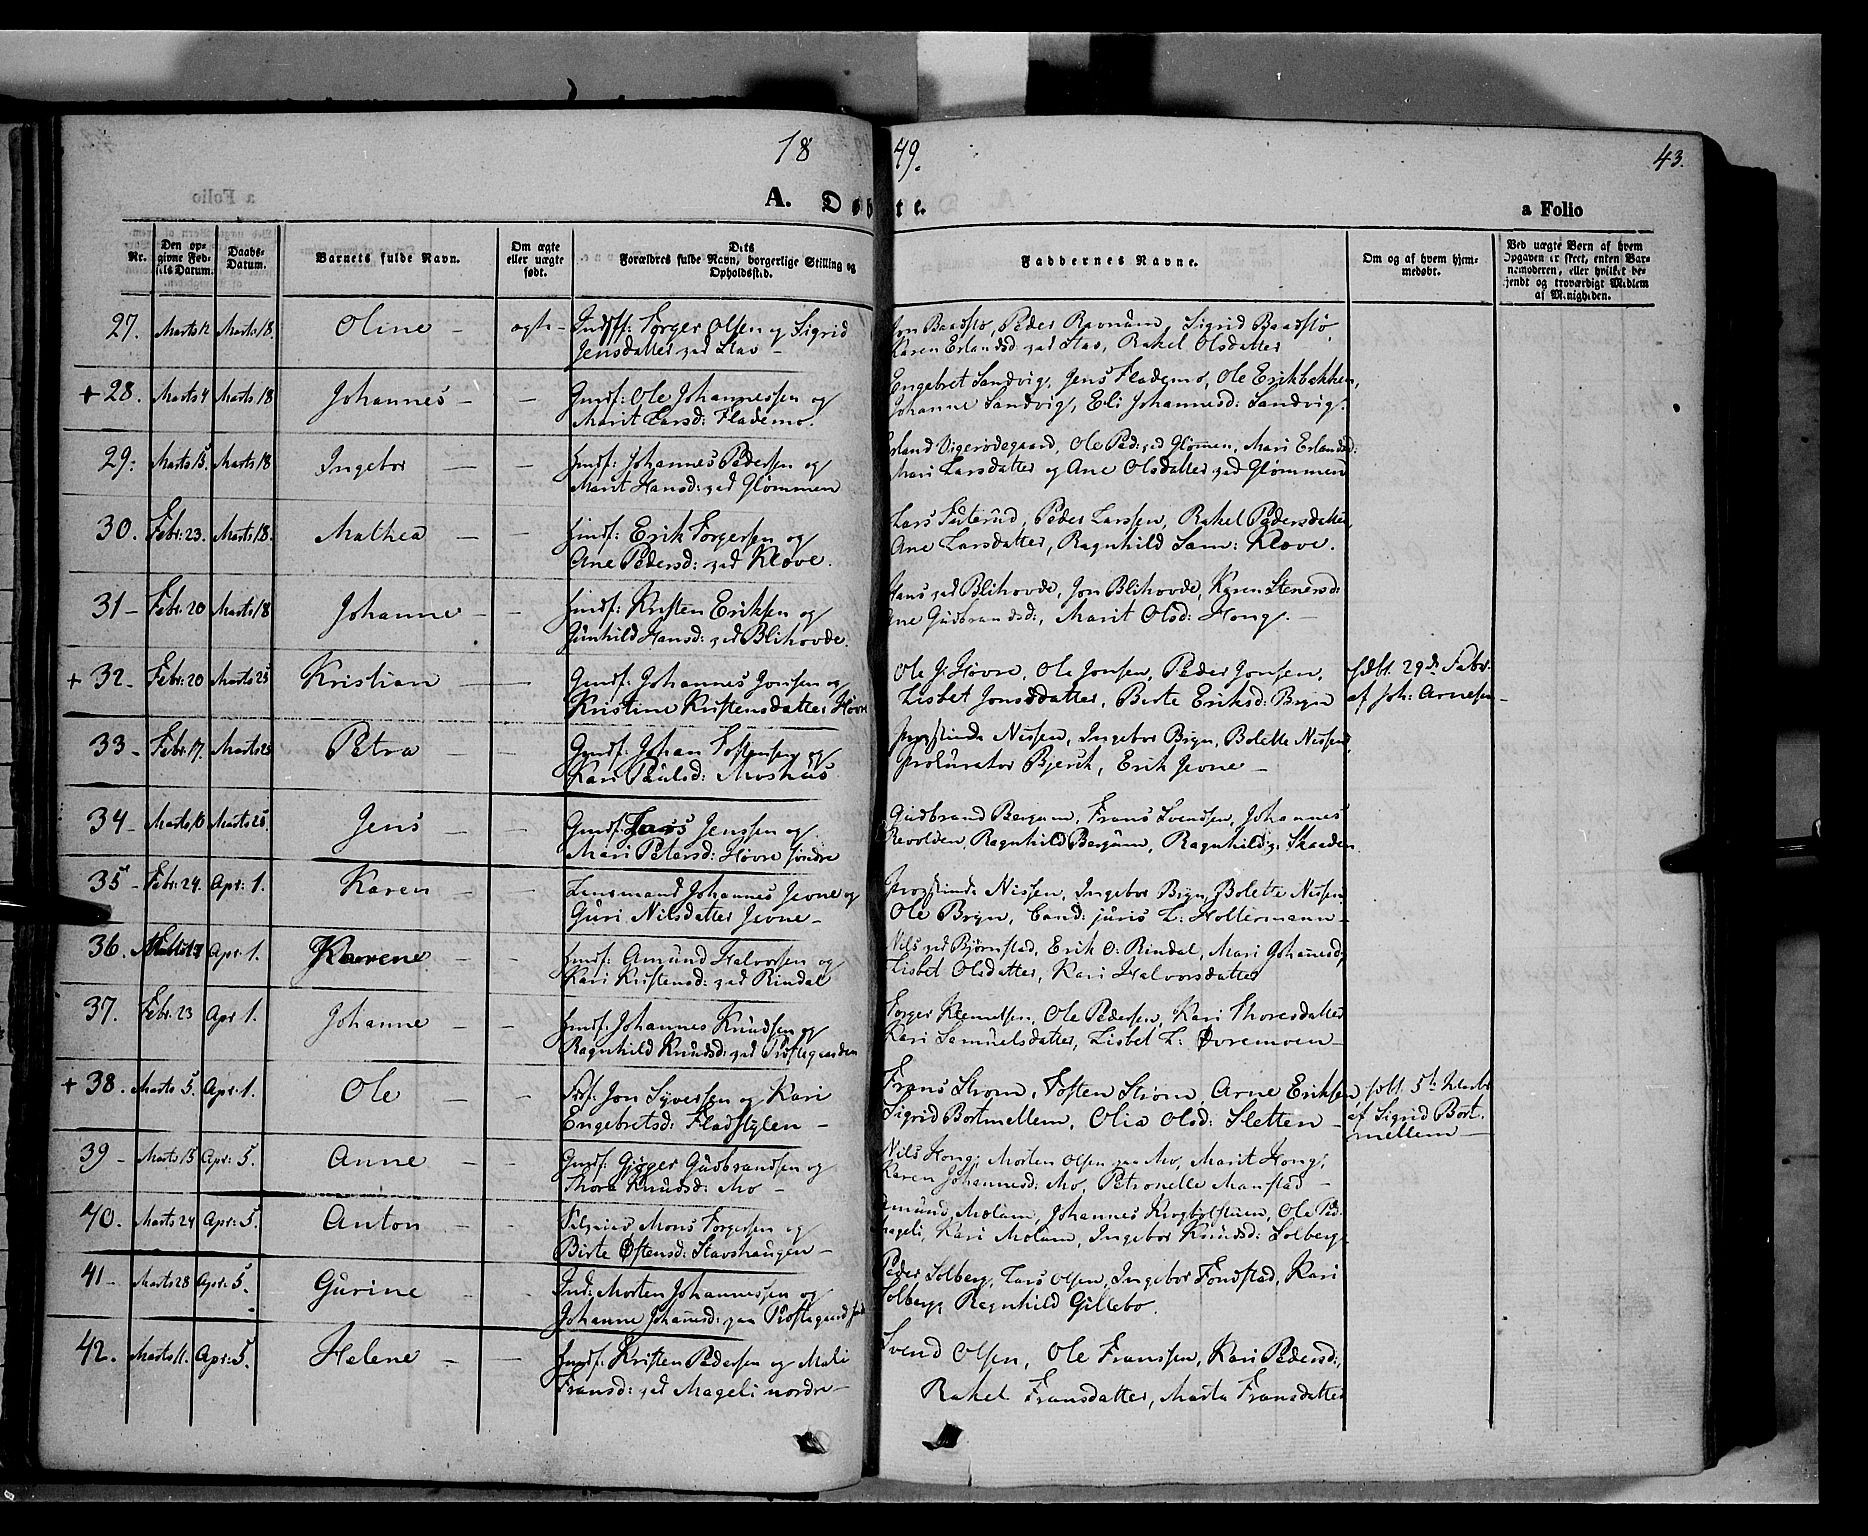 18 49. 43.
A. Døbte. a Folio
Nr. Den opgivne Fødsels Datum. Daabs-Datum. Barnets fulde Navn. Om ægte eller uægte født. Dets Forældres fulde Navn, borgerlige Stilling og Opholdssted. Faddernes Navne. Om og af hvem hjemmedøbt. Ved uægte Børn af hvem Opgaven er skeet, enten Barnemoderen, eller hvilket bekjendt og troværdigt Medlem af Menigheden.
27. Marts 12 Marts 18. Oline – ægte – Torger Olsen og Sigrid Jon Baadstø, Peder Ravnum, Sigrid Baadstø,
Jensdatter ved Stav – Karen Erlandsd: ved Stav, Rakel Olsdatter
+ 28. Marts 4 Marts 18 Johannes – – Gmdf: Ole Johannessen og Engebret Sandvig, Jens Flademo, Ole Erikbakken,
Marit Larsd: Flademo. Johanne Sandvig, Eli Johannesd: Sandvig.
29: Marts 15. Marts 18 Ingebor – – Inds: Johannes Pedersen og Erland Vigerødegaard, Ole Ped: ved Glømmen, Mari Erlandsd:
Marit Hansd: ved Glømmen Mari Larsdatter og Ane Olsdatter ved Glømmen
30. Febr: 23. Marts 18. Mathea – – Inds: Erik Torgersen og Lars Peder Larssen, Rakel Pedersdatter,
Ane Pedersd: ved Kløve. Ane Larsdatter, Ragnhild Sam: Kløve.
31 – Febr: 20 Marts 18 Johanne – – Inds: Kristen Eriksen og Hans ved Blihovde, Jon Blihovde, Karen Stenersd:
Gunhild Hansd: ved Blihovde. Ane Gudbrandsd:, Marit Olsd: Hong. –
+ 32 – Febr: 20 Marts 25 Kristian – – Gmdf: Johannes Jonsen og Ole J: Høvre, Ole Jonsen, Peder Jonsen, 29de Febr:
Kristine Kristensdatter Høvre Lisbet Jonsdatter, Birte Eriksd: Bryn af Joh: Arnesen –
33 – Febr: 17. Marts 25 Petra – – Gmdf: Johan Tostensen og Provstinde Nissen, Ingebor Bryn, Bolette Nissen,
Kari Paulsd: Moshuus. Procurator Bjerck, Erik Jevne –
34 – Marts 10 Marts 25. Jens – – Gmdf: Lars Jenssen og Gudbrand Bergum, Frans Svendsen, Johannes
Mari Petersd: Høvre søndre Revolden, Ragnhild Bergum, Ragnhild Skaaden
35 – Febr: 24. Apr: 1. Karen – – Lensmand Johannes Jevne og Provstinde Nissen, Ingebor Bryn, Bolette Nissen
Guri Nilsdatter Jevne – Ole Bryn, Cand: juris L: Holtermann –
36. Apr: 1. Karene – – Inds: Amund Halvorsen og Nils ved Bjørnstad, Erik O: Rindal, Mari Johannesd:
Kari Kristensd: ved Rindal Lisbet Olsdatter, Kari Halvorsdatter
37. Febr. 23 Apr 1. Johanne – – Inds: Johannes Knudsen og Torger Klemetsen, Ole Pedersen, Kari Thoresdatter
Ragnhild Knudsd: ved Prostegaarden Kari Samuelsdatter, Lisbet L: Øvremoen –
+ 38. Marts 5. Apr: 1. Ole – – Jon Syversen og Kari Frans Strøm, Tosten Strøm, Arne Eriksen, 5te Marts
Engebretsd: Fladstylen – Sigrid Bortmellem, Olia Olsd: Sletten – af Sigrid Bort-
mellem –
39 – Marts 15 Apr: 5. Anne – – Gmdf: Gjøger Gudbrandsen og Nils Hong, Morten Olsen paa Mo, Marit Hong,
Thora Knudsd: Mo – Karen Johannesd: Mo, Petronelle Manstad –
40. Marts 24 Apr: 5. Anton – – Mons Torgersen og Amund Molum, Johannes Ole Ped:
Birte Østensd: Stavshaugen – Mageli, Kari Molum, Ingebor Knudsd: Solberg.
41 – Marts 28 Apr: 5. Gurine – – Inds: Morten Johannessen og Peder Solberg, Lars Olsen, Ingebor Fondstad, Kari
Johanne Johannesd: paa Solberg, Ragnhild Gillebo.
42. Marts 11. Apr: 5. Helene – – Inds: Kristen Pedersen og Mali Svend Olsen, Ole Franssen, Kari Pedersd:,
Fransd: ved Mageli nordre – Rakel Fransdatter, Marta Fransdatter